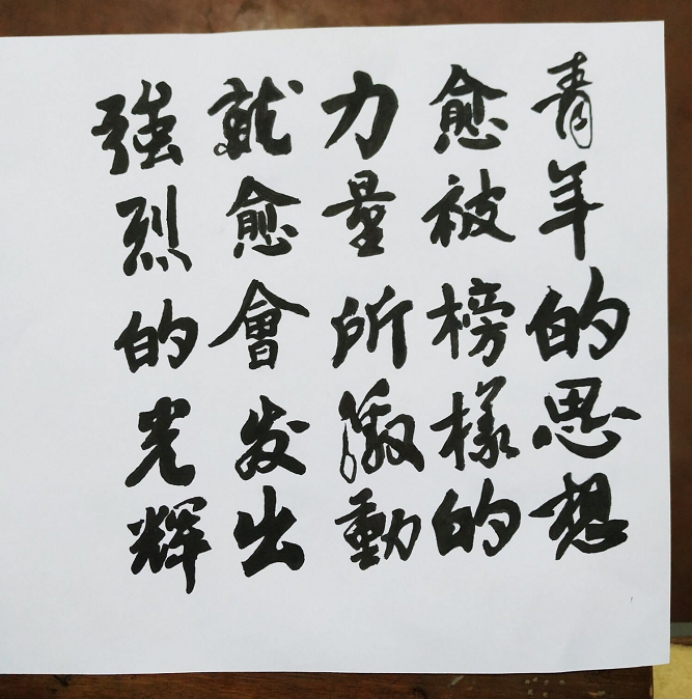 青年的思想
愈被榜樣的
力量所激動
就愈會发出
強烈的光辉